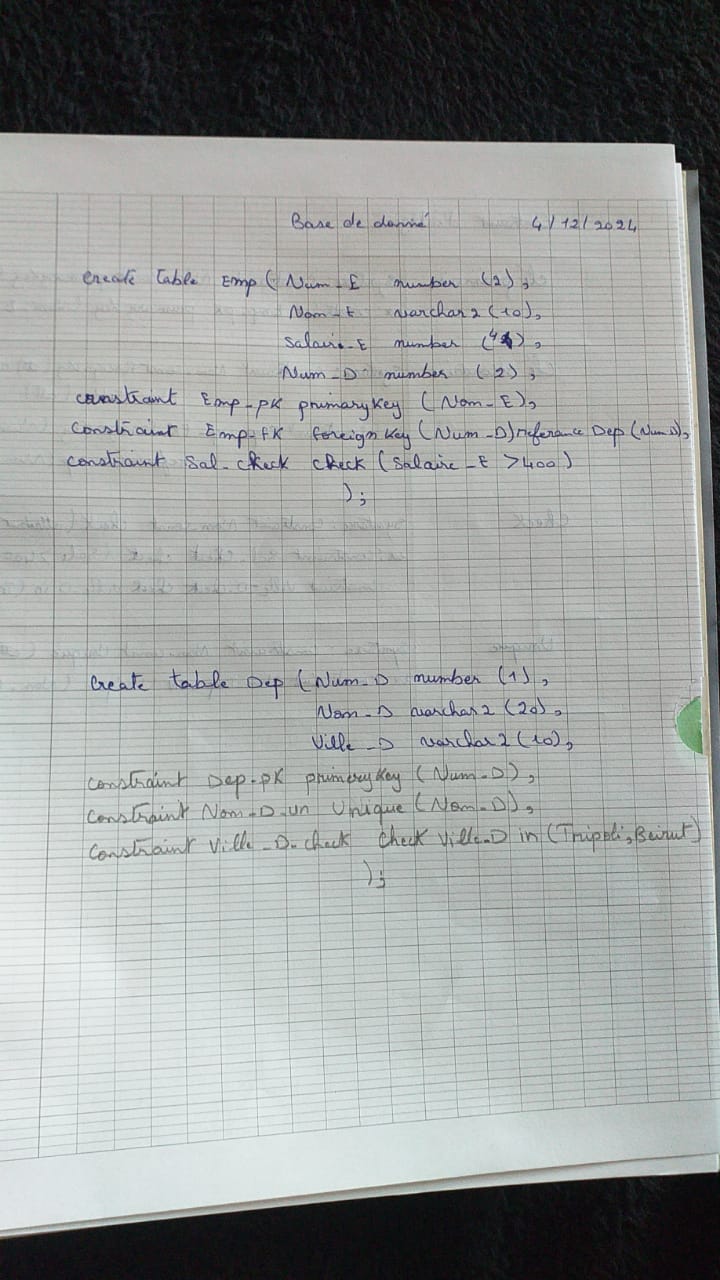 Base de donné 4/12/2024
create table Emp ( Num_E number (2),
Nom_E varchar2 (10),
Salaire_E number (4),
Num_D number (2),
constraint Emp_pk primary key ( Nom_E),
constraint Emp_fk foreign key (Num_D) referance Dep (Num_D),
constraint Sal_check check (Salaire_E >400)
);
create table Dep (Num_D number (1),
Nom_D varchar2 (20),
Ville_D varchar2 (10),
constraint Dep_pk primery key ( Num_D),
constraint Nom_D_un Unique (Nom_D),
constraint Ville_D_check check Ville_D in (Trippoli, Beirut)
);